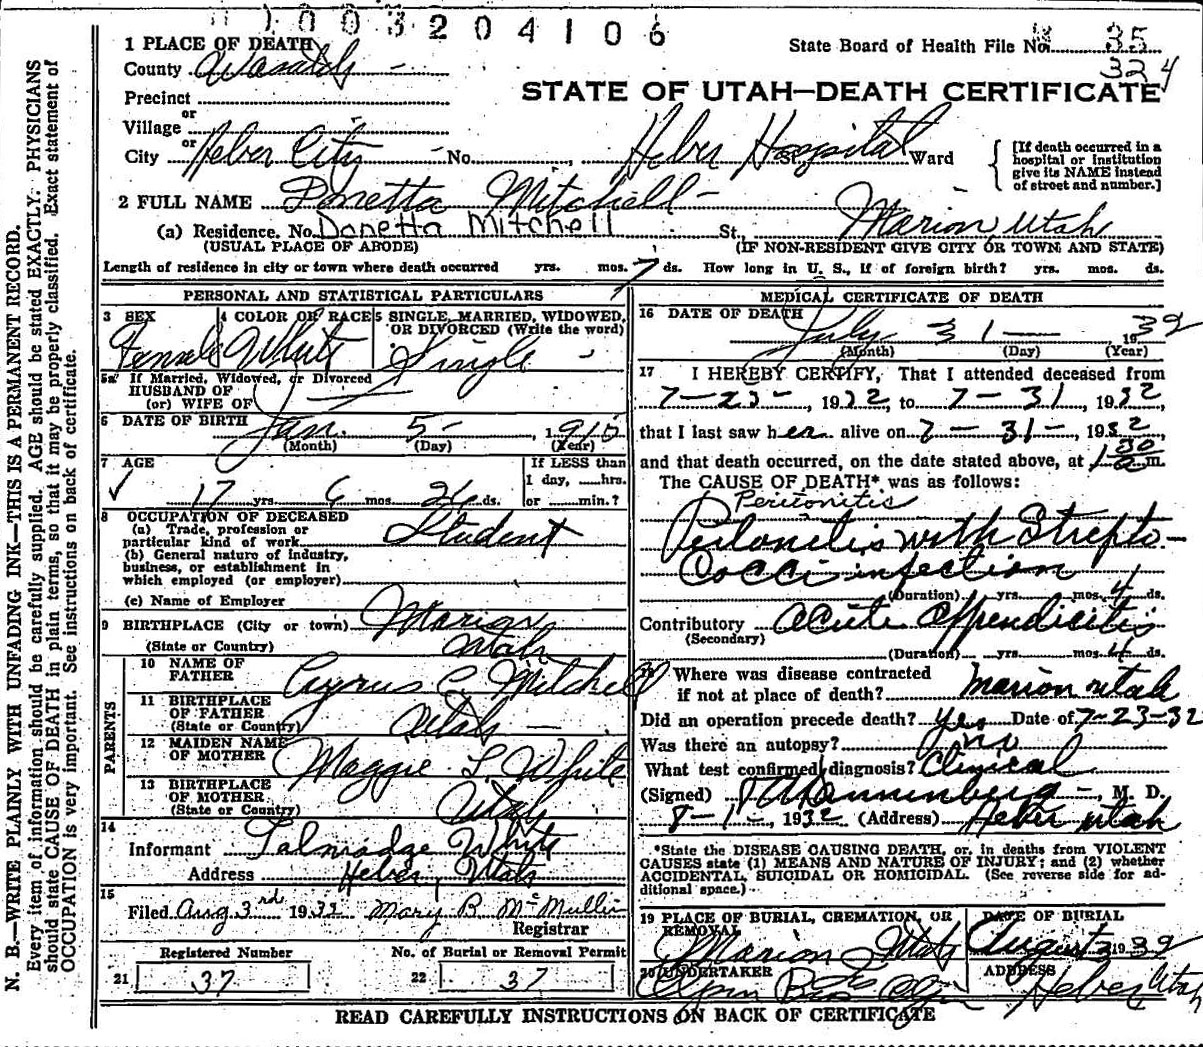 1003204106
State Board of Health File No. 35
324
1 PLACE OF DEATH
County Wasatch
STATE OF UTAH—DEATH CERTIFICATE
Precinct
or
Village
or
City Heber City No. , Heber Hospital St. Ward
[If death occurred in a hospital or institution give its NAME instead of street and number.]
2 FULL NAME Donetta Mitchell
(a) Residence. No. Donetta Mitchell St. Marion Utah
(USUAL PLACE OF ABODE) (IF NON-RESIDENT GIVE CITY OR TOWN AND STATE)
Length of residence in city or town where death occurred yrs. mos. 7 ds. How long in U. S., if of foreign birth? yrs. mos. ds.
PERSONAL AND STATISTICAL PARTICULARS
3 SEX 4 COLOR OR RACE 5 SINGLE, MARRIED, WIDOWED, OR DIVORCED (Write the word)
Female White Single
5a If Married, Widowed, or Divorced
HUSBAND OF
(or) WIFE OF
6 DATE OF BIRTH Jan. 5- , 1915
(Month) (Day) (Year)
7 AGE If LESS than
1 day, hrs.
17 yrs. 6 mos. 26 ds. or min.?
8 OCCUPATION OF DECEASED
(a) Trade, profession or
particular kind of work Student
(b) General nature of industry,
business, or establishment in
which employed (or employer)
(c) Name of Employer
9 BIRTHPLACE (City or town) Marion
(State or Country) Utah
PARENTS
10 NAME OF FATHER Cyrus C. Mitchell
11 BIRTHPLACE OF FATHER (State or Country) Utah
12 MAIDEN NAME OF MOTHER Maggie L. White
13 BIRTHPLACE OF MOTHER (State or Country) Utah
14
Informant Talmadge White
Address Heber, Utah
15
Filed Aug 3rd 1932 Mary B McMullin
Registrar
Registered Number No. of Burial or Removal Permit
21 37 22 37
MEDICAL CERTIFICATE OF DEATH
16 DATE OF DEATH July 31 1932
(Month) (Day) (Year)
17 I HEREBY CERTIFY, That I attended deceased from
7-23-, 1932, to 7-31, 1932,
that I last saw her alive on 7-31-, 1932,
and that death occurred, on the date stated above, at 1 30 a.m.
The CAUSE OF DEATH* was as follows:
Peritonitis
Peritonitis with Strepto-
Cocci infection
(Duration) yrs. mos. 4 ds.
Contributory Acute Appendicitis
(Secondary)
(Duration) yrs. mos. 4 ds.
18 Where was disease contracted
if not at place of death? Marion Utah
Did an operation precede death? Yes Date of 7-23-32
Was there an autopsy? no
What test confirmed diagnosis? Clinical
(Signed) Dannenberg, M. D.
8-1-, 1932 (Address) Heber Utah
*State the DISEASE CAUSING DEATH, or, in deaths from VIOLENT
CAUSES state (1) MEANS AND NATURE OF INJURY; and (2) whether
ACCIDENTAL, SUICIDAL OR HOMICIDAL. (See reverse side for additional space.)
19 PLACE OF BURIAL, CREMATION, OR REMOVAL DATE OF BURIAL
Marion Utah August 3 1932
20 UNDERTAKER ADDRESS
Olpin Bros Heber Utah
READ CAREFULLY INSTRUCTIONS ON BACK OF CERTIFICATE
N. B.—WRITE PLAINLY WITH UNFADING INK—THIS IS A PERMANENT RECORD.
Every item of information should be carefully supplied. AGE should be stated EXACTLY. PHYSICIANS
should state CAUSE OF DEATH in plain terms, so that it may be properly classified. Exact statement of
OCCUPATION is very important. See instructions on back of certificate.